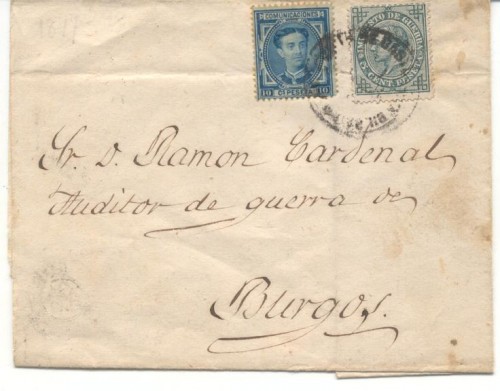 COMUNICACIONES
10 CPESETA 10
IMPUESTO DE GUERRA
Sr. D. Ramon Cardenal
Auditor de guerra de
Burgos.